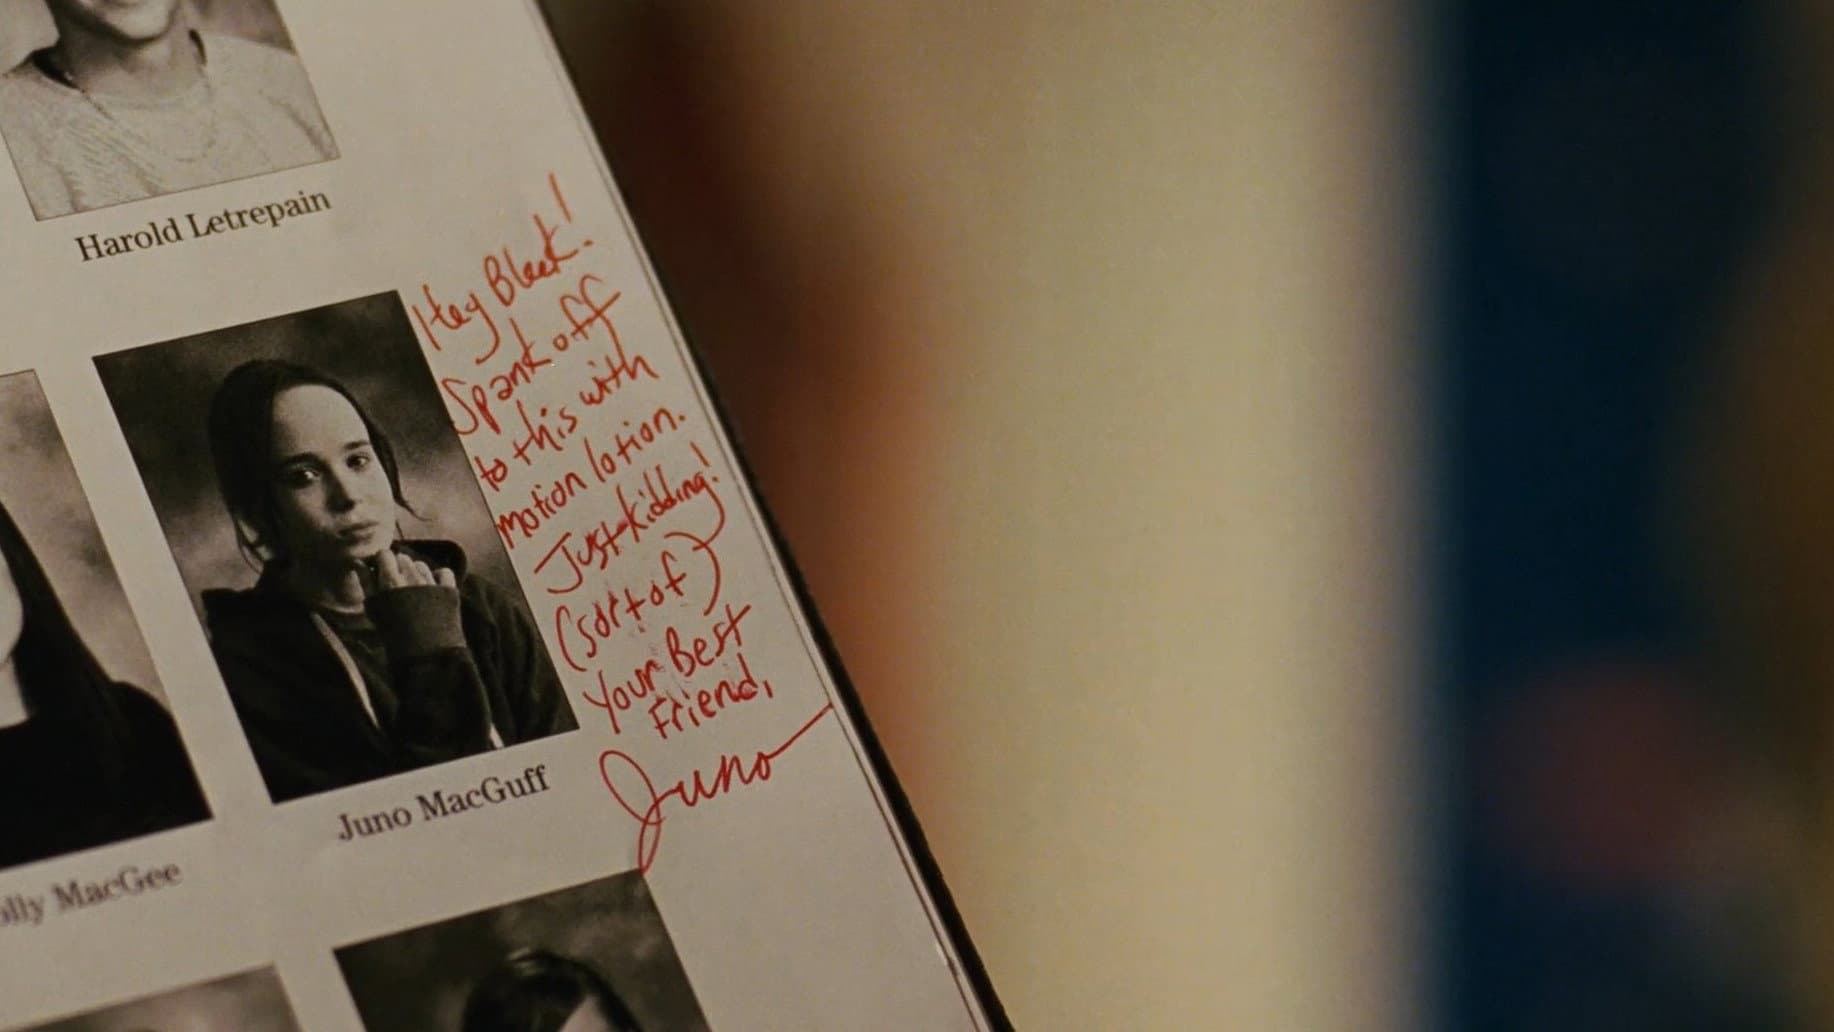 Harold Letrepain
Hey Bleek!
Spank off
to this with
motion lotion.
Just kidding!
(sort of)
Your Best
Friend,
Juno
Juno MacGuff
olly MacGee